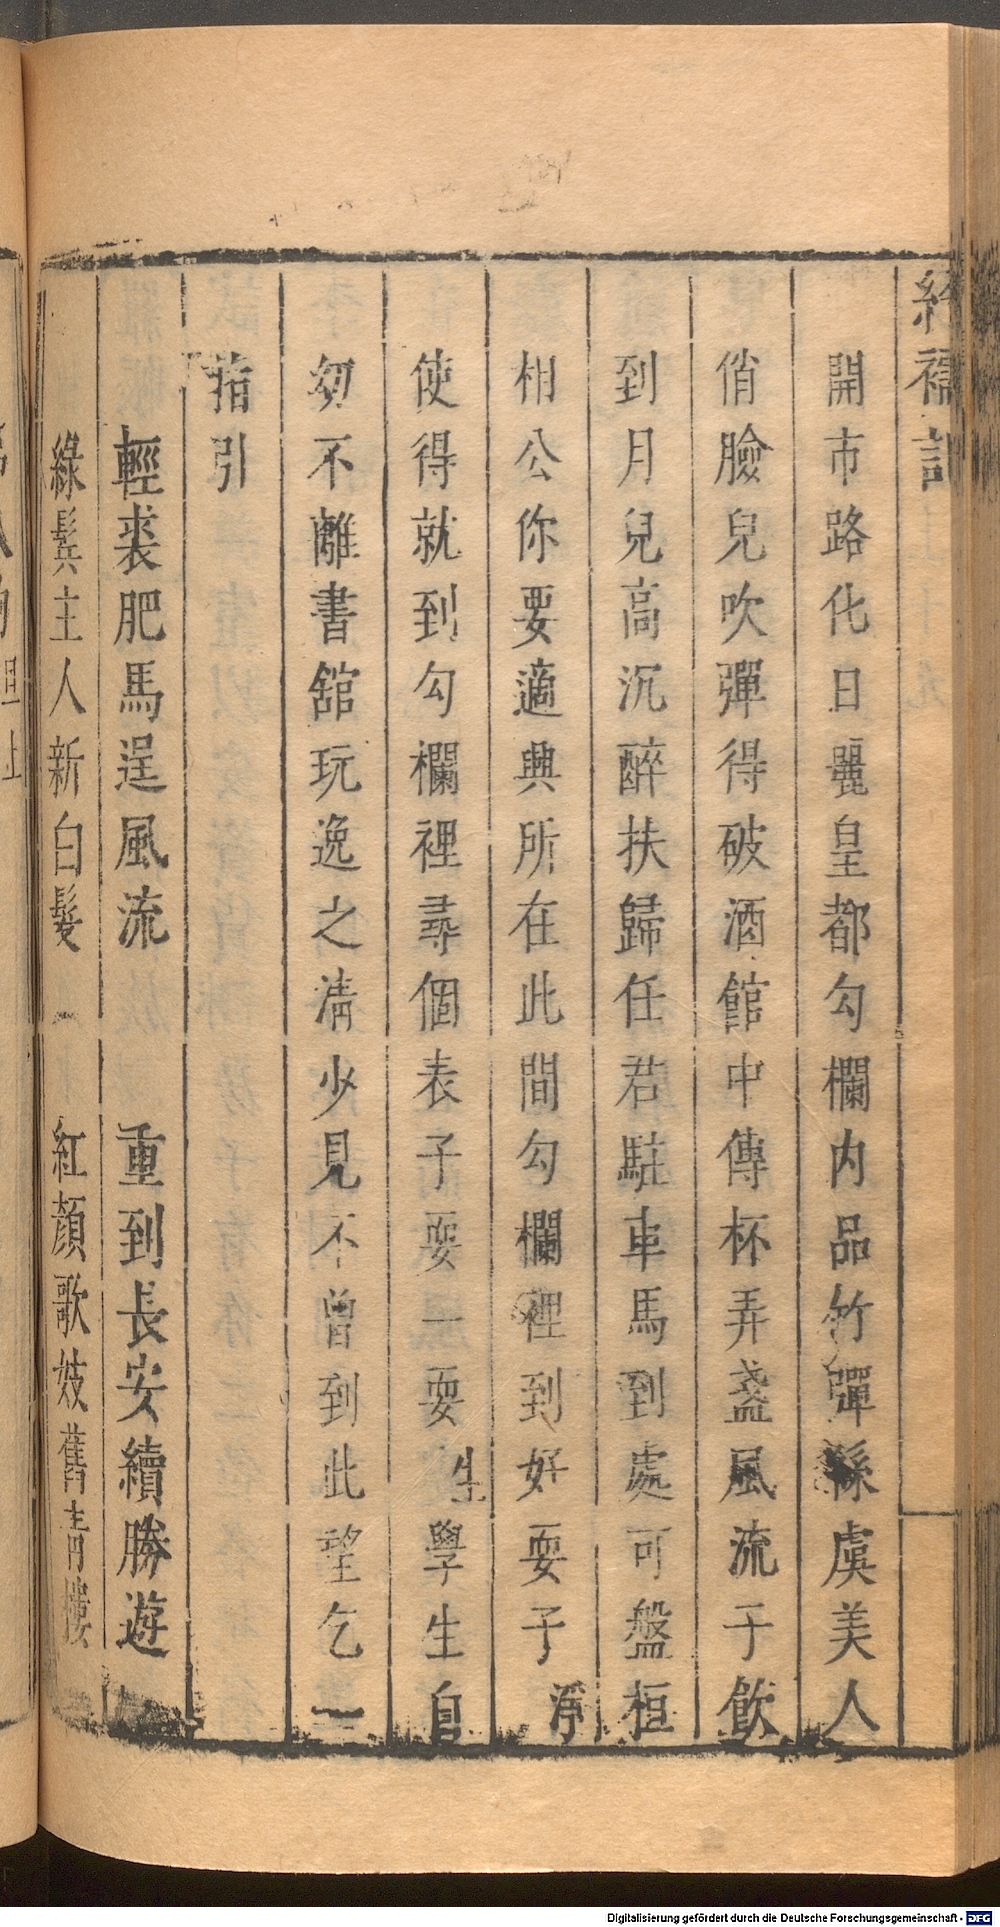 繡襦記
開市路化日麗皇都勾欄内品竹彈絲虞美人
俏臉兒吹彈得破酒館中傳杯弄盞風流于飲
到月兒高沉醉扶歸任君駐車馬到處可盤桓
相公你要適興所在此間勾欄裡到好耍子淨
使得就到勾欄裡尋個表子耍一耍生學生自
幼不離書舘玩逸之淸少見不曾到此望乞一
指引
輕裘肥馬逞風流 重到長安續勝遊
綠鬂主人新白髮 紅顏歌妓舊青樓
Digitalisierung gefördert durch die Deutsche Forschungsgemeinschaft - DFG